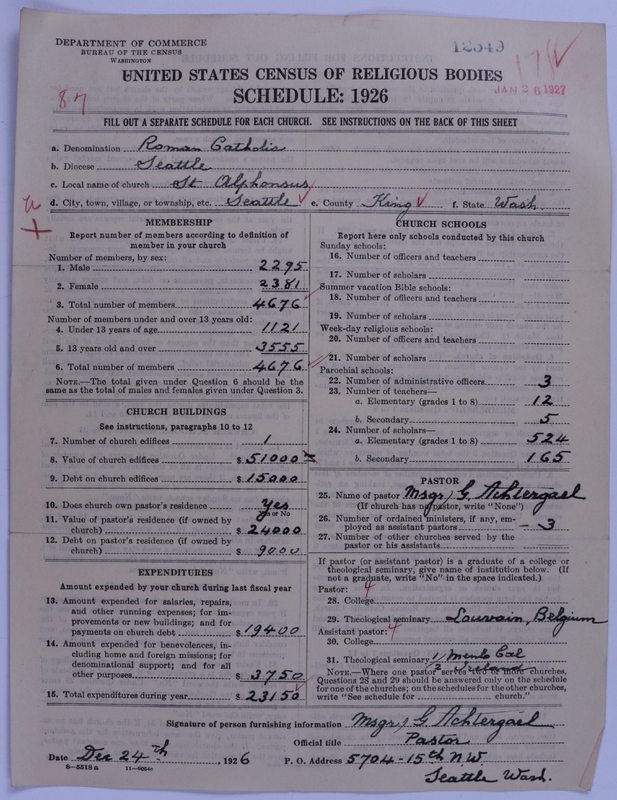 DEPARTMENT OF COMMERCE
BUREAU OF THE CENSUS
WASHINGTON
12349
JAN 28 1927
87
UNITED STATES CENSUS OF RELIGIOUS BODIES
SCHEDULE: 1926
FILL OUT A SEPARATE SCHEDULE FOR EACH CHURCH. SEE INSTRUCTIONS ON THE BACK OF THIS SHEET
a. Denomination Roman Catholic
b. Diocese Seattle
c. Local name of church St Alphonsus
d. City, town, village, or township, etc. Seattle e. County King f. State Wash.
MEMBERSHIP
Report number of members according to definition of
member in your church
Number of members, by sex:
1. Male 2295
2. Female 2381
3. Total number of members 4676
Number of members under and over 13 years old:
4. Under 13 years of age 1121
5. 13 years old and over 3555
6. Total number of members 4676
NOTE.—The total given under Question 6 should be the
same as the total of males and females given under Question 3.
CHURCH BUILDINGS
See instructions, paragraphs 10 to 12
7. Number of church edifices 1
8. Value of church edifices $ 51000
9. Debt on church edifices $ 15000
10. Does church own pastor's residence Yes
Yes or No
11. Value of pastor's residence (if owned by
church) $ 24000
12. Debt on pastor's residence (if owned by
church) $ 9000
EXPENDITURES
Amount expended by your church during last fiscal year
13. Amount expended for salaries, repairs,
and other running expenses; for im-
provements or new buildings; and for
payments on church debt $ 19400
14. Amount expended for benevolences, in-
cluding home and foreign missions; for
denominational support; and for all
other purposes $ 3750
15. Total expenditures during year $ 23150
CHURCH SCHOOLS
Report here only schools conducted by this church
Sunday schools:
16. Number of officers and teachers
17. Number of scholars
Summer vacation Bible schools:
18. Number of officers and teachers
19. Number of scholars
Week-day religious schools:
20. Number of officers and teachers
21. Number of scholars
Parochial schools:
22. Number of administrative officers 3
23. Number of teachers—
a. Elementary (grades 1 to 8) 12
b. Secondary 5
24. Number of scholars—
a. Elementary (grades 1 to 8) 524
b. Secondary 165
PASTOR
25. Name of pastor Msgr) G. Achtergael
(If church has no pastor, write "None")
26. Number of ordained ministers, if any, em-
ployed as assistant pastors 3
27. Number of other churches served by the
pastor or his assistants
If pastor (or assistant pastor) is a graduate of a college or
theological seminary, give name of institution below. (If
not a graduate, write "No" in the space indicated.)
Pastor: 4
28. College
29. Theological seminary Louvain, Belgium
Assistant pastor: 4
30. College
31. Theological seminary 1) Menlo Cal
2 Ireland
NOTE.—Where one pastor serves two or more churches,
Questions 28 and 29 should be answered only on the schedule
for one of the churches; on the schedules for the other churches,
write "See schedule for church."
Signature of person furnishing information Msgr) G. Achtergael
Official title Pastor
Date Dec 24th, 1926 P. O. Address 5704-15th N.W.
Seattle Wash.
8-5518a 11-9056